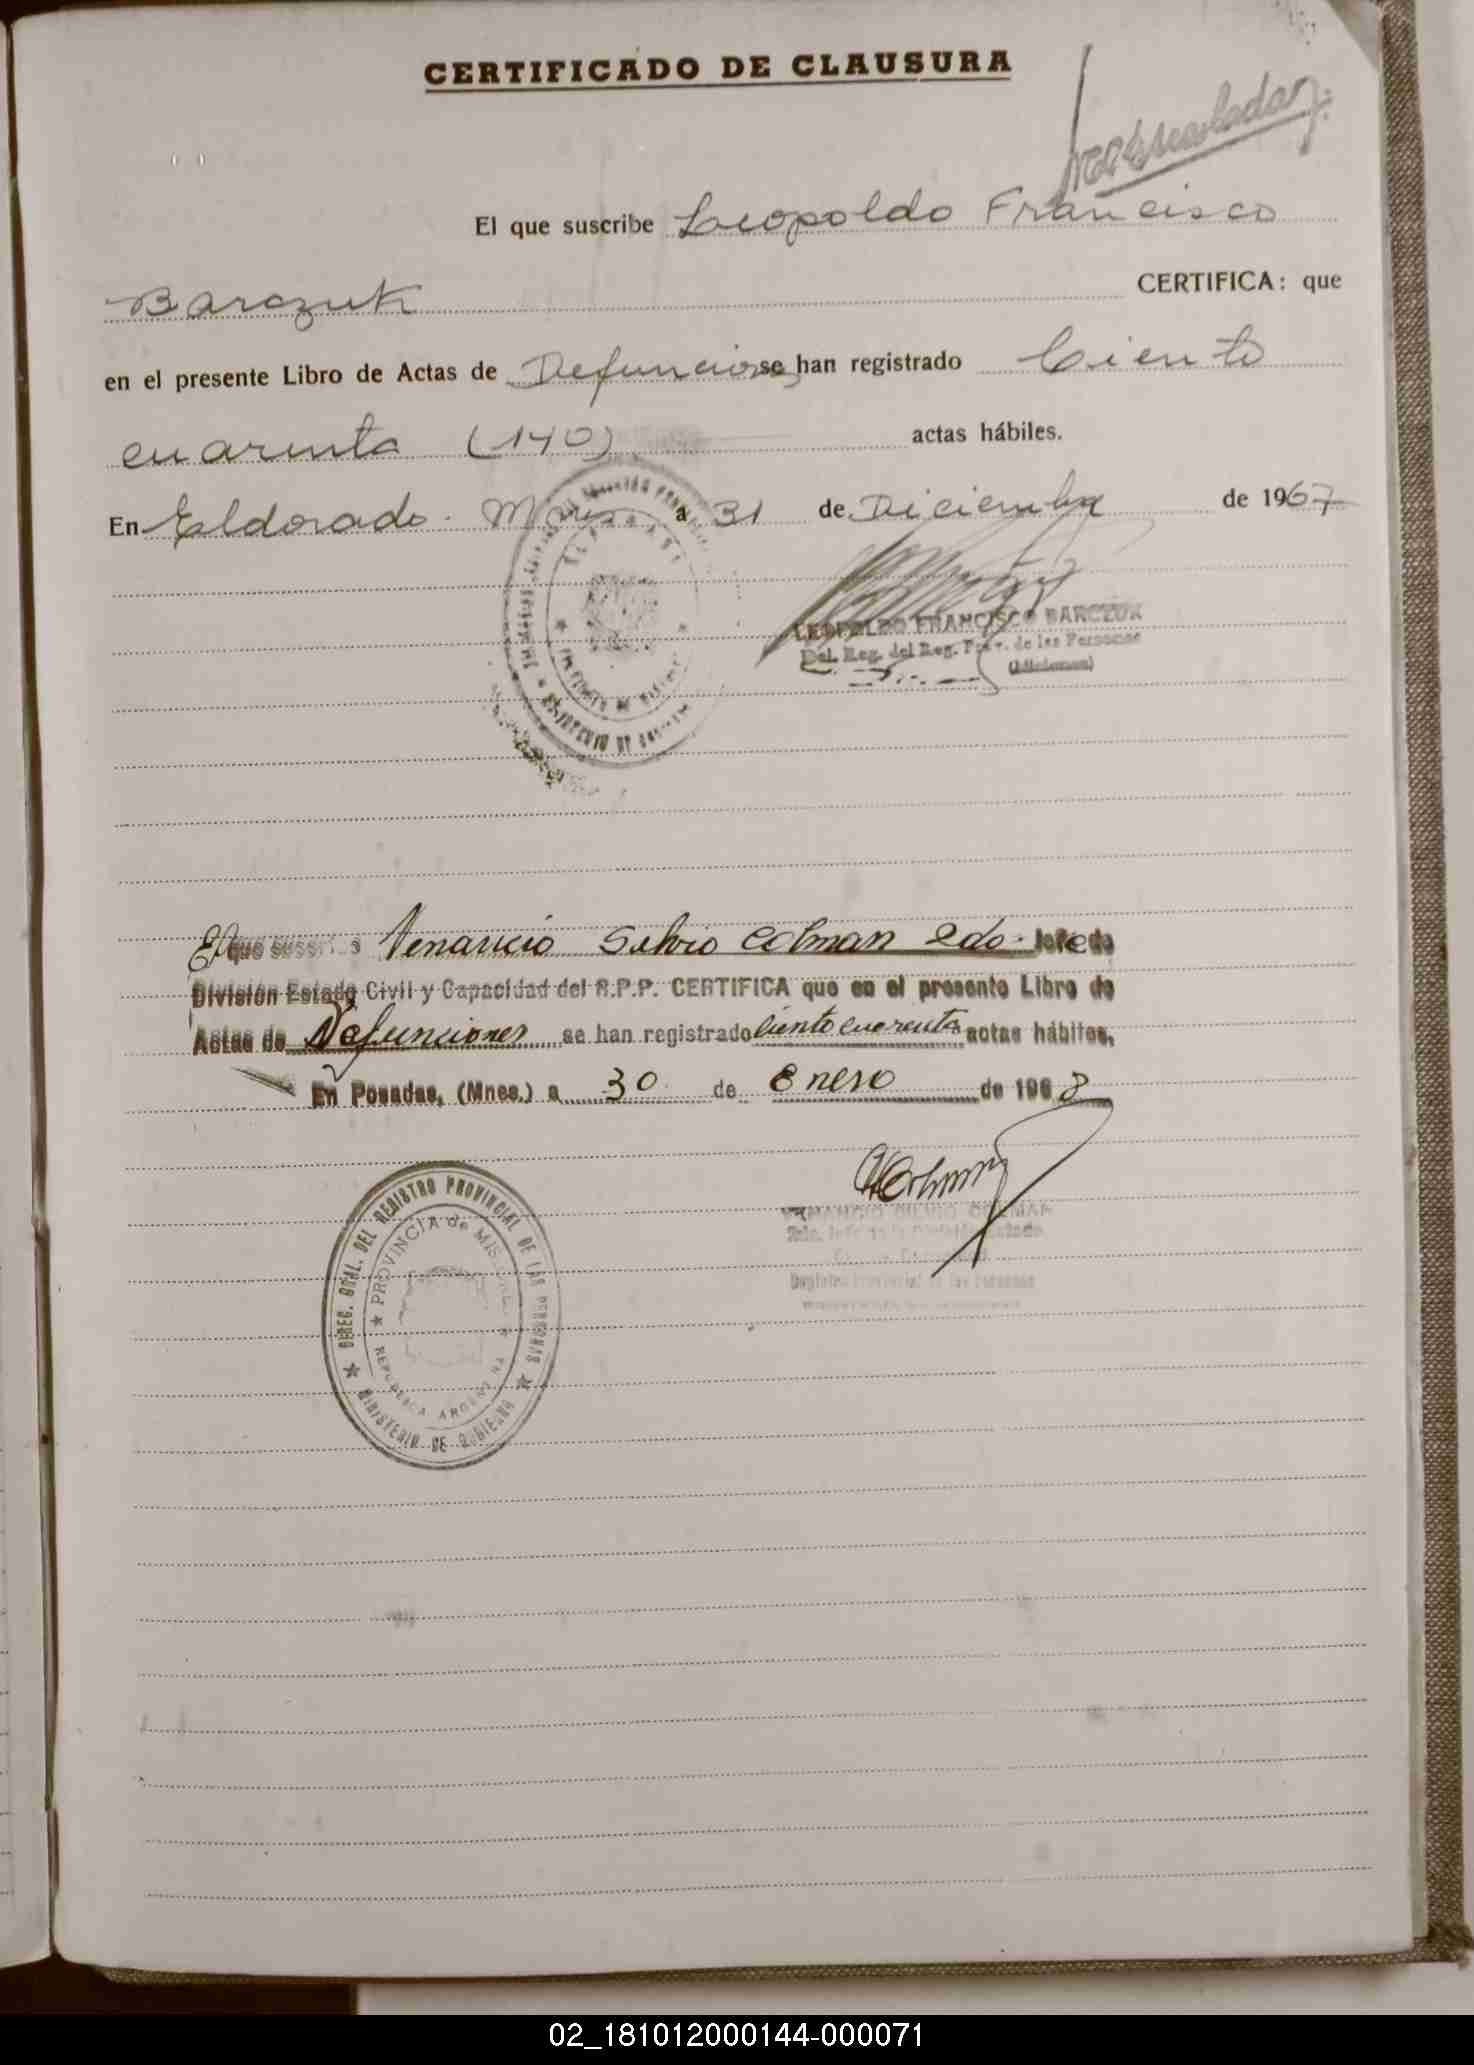 CERTIFICADO DE CLAUSURA
El que suscribe Leopoldo Francisco
Barczuk CERTIFICA: que
en el presente Libro de Actas de Defunciones se han registrado Ciento
cuarenta (140) actas hábiles.
En Eldorado. Mnes a 31 de Diciembre de 1967
LEOPOLDO FRANCISCO BARCZUK
Del. Reg. del Reg. Prov. de las Personas
(Misiones)
ELDORADO
El que suscribe Venancio Silvio Colman Edo. Jefe de
División Estado Civil y Capacidad del R.P.P. CERTIFICA que en el presente Libro de
Actas de Defunciones se han registrado Ciento cuarenta actas hábiles,
En Posadas, (Mnes.) a 30 de Enero de 1968
VENANCIO SILVIO COLMAN
Registro Provincial de las Personas
DIREC. GRAL. DEL REGISTRO PROVINCIAL DE LAS PERSONAS
PROVINCIA de MISIONES
REPUBLICA ARGENTINA
MINISTERIO DE GOBIERNO
02_181012000144-000071